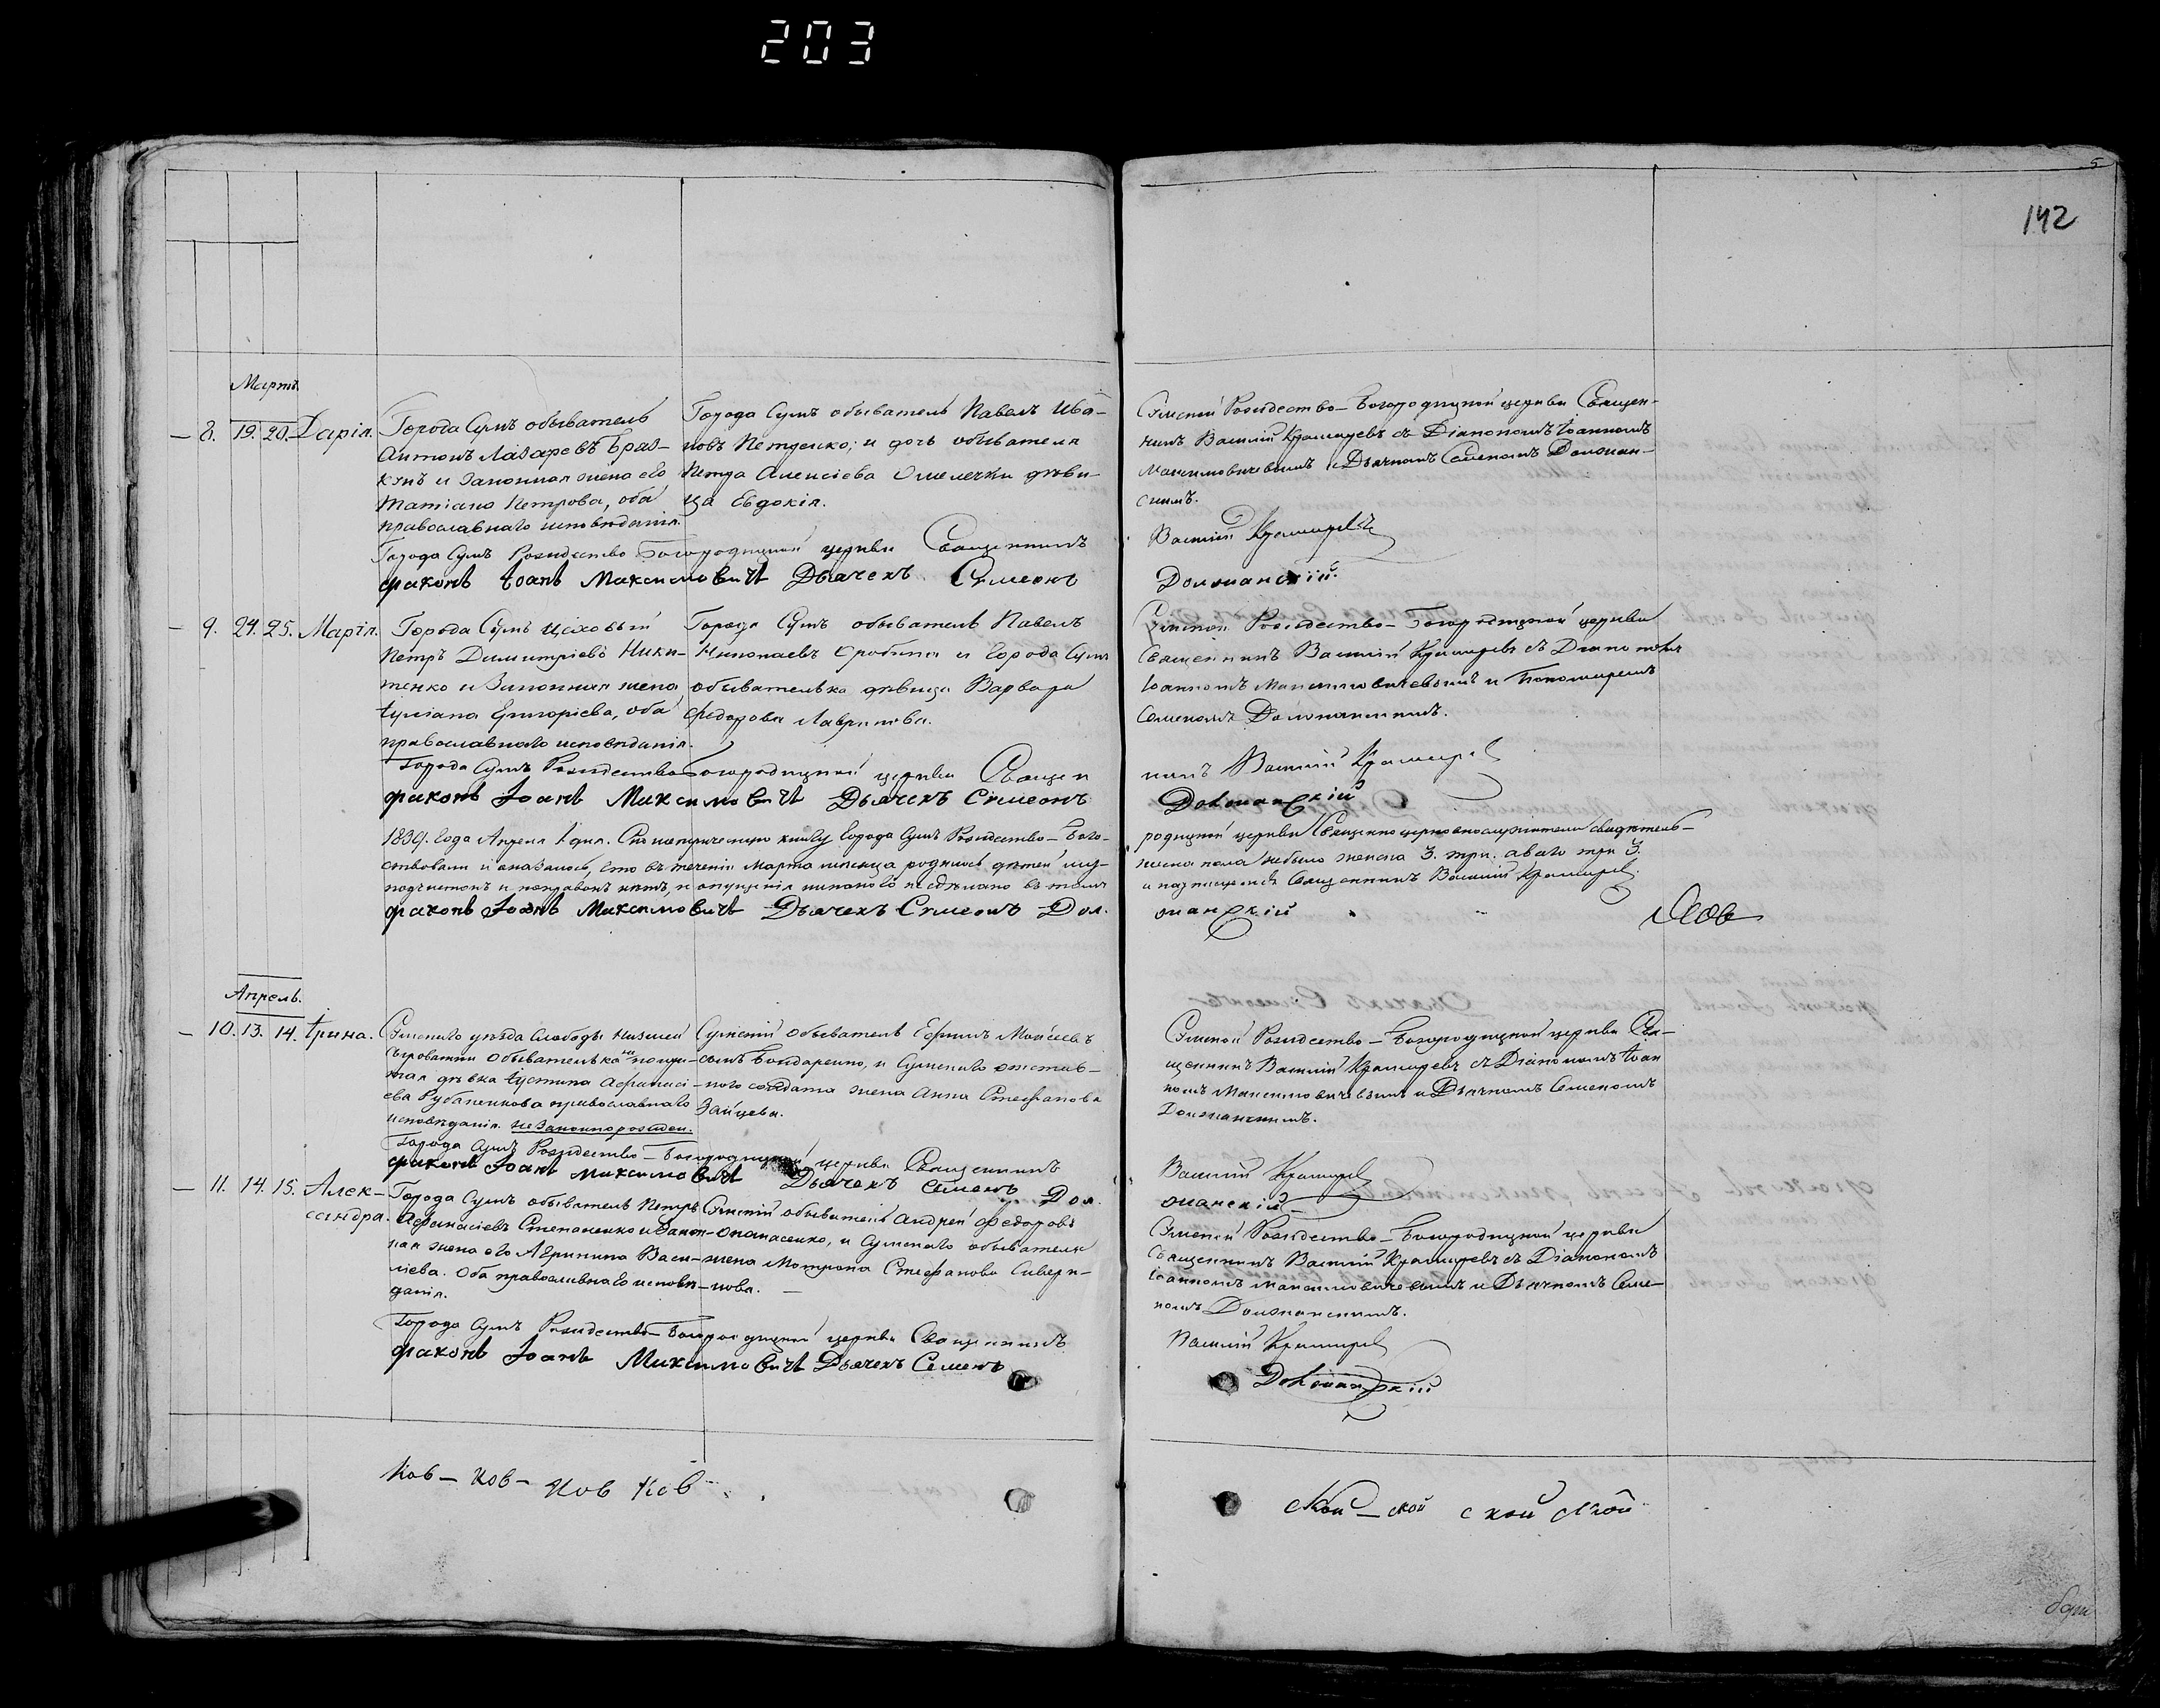 203
5
142
Мартъ
8. 19. 20. Дарія.
Города Сумъ обыватель
Антонъ Лазаревъ
и законная жена его
Татіана Петрова, оба
православнаго исповѣданія.
Города Сумъ обыватель Павелъ Ива-
новъ и дочь обывателя
Петра Алексіева дѣви-
ца Евдокія.
Сумской Рождество-Богородицкой церкви Священ-
никъ Василій съ Діакономъ Іоанномъ
Максимовичевымъ и Дьячкомъ Семеномъ Должан-
скимъ.
Города Сумъ Рождество Богородицкой церкви Священникъ
Василій
діаконъ Іоанъ Максимовичъ Дьячекъ Симеонъ
Должанскій.
9. 24. 25. Марія.
Города Сумъ Цѣховый
Петръ Димитріевъ Ники-
тенко и Законная жена
Іуліана Григоріева, оба
православнаго исповѣданія.
Города Сумъ обыватель Павелъ
Николаевъ и города Сумъ
обывателька дѣвица Варвара
Федорова
Сумской Рождество-Богородицкой церкви
Священникъ Василій съ Діакономъ
Іоанномъ Максимовичевымъ и Пономаремъ
Семеномъ Должанскимъ.
Города Сумъ Рождество Богородицкой церкви Священ
никъ Василій
діаконъ Іоанъ Максимовичъ Дьячекъ Симеонъ
Должанскій
1834. года Апреля 1 дня. Сію метрическую книгу города Сумъ Рождество-Бого-
родицкой церкви Священноцерковнослужители свидѣтель-
ствовали и оказалось, что въ теченіи Марта мѣсяца родилось дѣтей муж-
ска пола небыло женска 3. три. а всего три 3.
и опущенія никакого несдѣлано въ томъ
и подписуемся Священникъ Василій
діаконъ Іоанъ Максимовичъ Дьячекъ Симеонъ Дол.
жанскій
Апрель.
10. 13. 14. Ірина.
Сумскаго уѣзда Слободы Нижней
Сыроватки обывателька
дѣвка Іустина Афанасі-
ева православнаго
исповѣданія. незаконнорожден.
Сумскій обыватель Ефимъ Моисеевъ
сынъ Бондаренко, и Сумскаго отстав-
ного солдата жена Анна Стефанова
Зайцева.
Сумской Рождество-Богородицкой церкви Свя-
щенникъ Василій съ Діакономъ Іоан
номъ Максимовичевымъ и Дьячкомъ Семеномъ
Должанскимъ.
Города Сумъ Рождество-Богородицкой церкви Священникъ
Василій
діаконъ Іоанъ Максимовичъ Дьячекъ Семенъ Дол.
жанскій
11. 14. 15. Алек-
сандра.
Города Сумъ обыватель Петръ
Афанасіевъ Степаненко и Закон-
ная жена его Агрипина Васи-
ліева. Оба православнаго исповѣ-
данія.
Сумскій обыватель Андрей Федоровъ
Опанасенко, и Сумскаго обывателя
жена Мотрона Стефанова
Сумской Рождество-Богородицкой церкви
Священникъ Василій съ Діакономъ
Іоанномъ Максимовичевымъ и Дьячкомъ Семе-
номъ Должанскимъ.
Города Сумъ Рождество-Богородицкой церкви Священникъ
Василій
діаконъ Іоанъ Максимовичъ Дьячекъ Семенъ
Должанскій
Ков - ков - ков ков
ской - ской ской ской